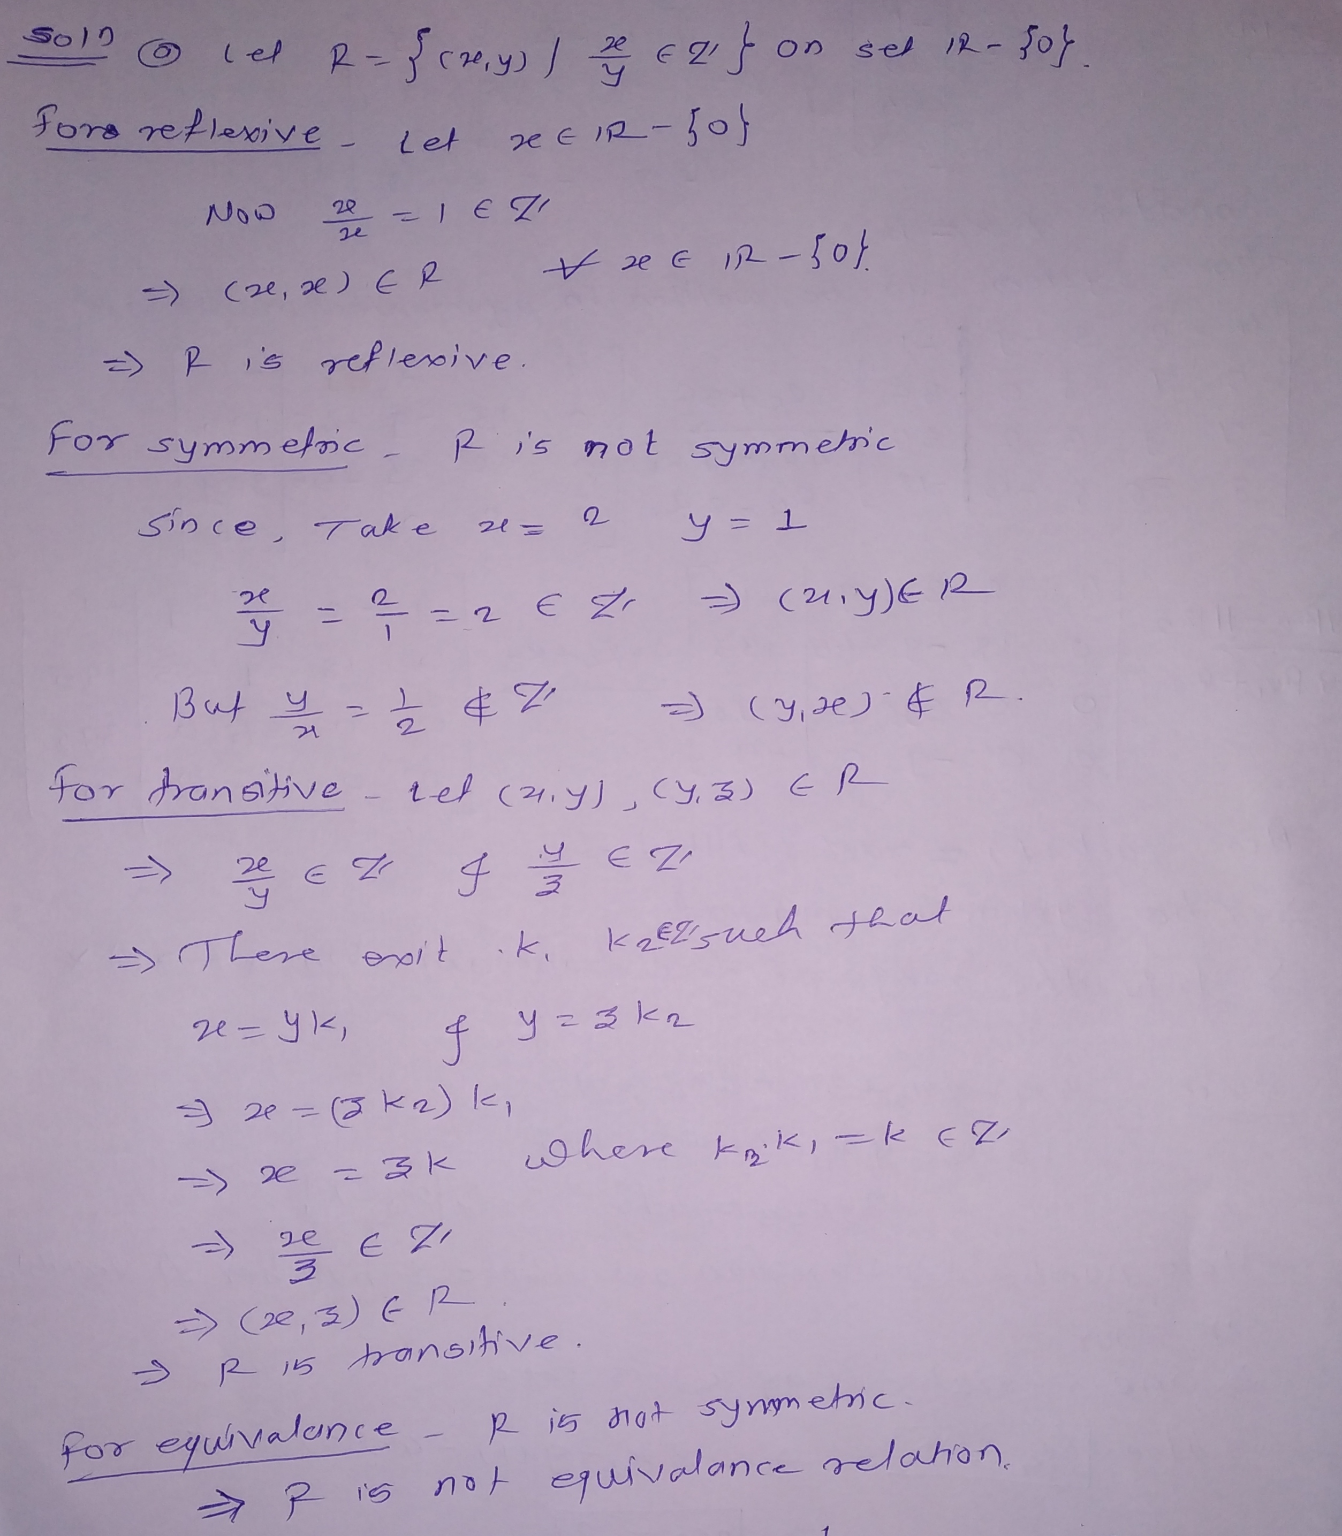 Soln ⓐ Let R = {(x,y) | x/y ∈ Z} on set IR - {0}.
for reflexive - Let x ∈ IR - {0}
Now x/x = 1 ∈ Z
⇒ (x, x) ∈ R ∀ x ∈ IR - {0}.
⇒ R is reflexive.
For symmetric - R is not symmetric
Since, Take x = 2 y = 1
x/y = 2/1 = 2 ∈ Z ⇒ (x,y) ∈ R
But y/x = 1/2 ∉ Z ⇒ (y,x) ∉ R.
for transitive - Let (x,y), (y,z) ∈ R
⇒ x/y ∈ Z & y/z ∈ Z
⇒ There exit k₁ k₂ ∈ Z such that
x = yk₁ & y = zk₂
⇒ x = (zk₂) k₁
⇒ x = zk where k₂·k₁ = k ∈ Z
⇒ x/z ∈ Z
⇒ (x,z) ∈ R.
⇒ R is transitive.
for equivalance - R is not symmetric.
⇒ R is not equivalance relation.